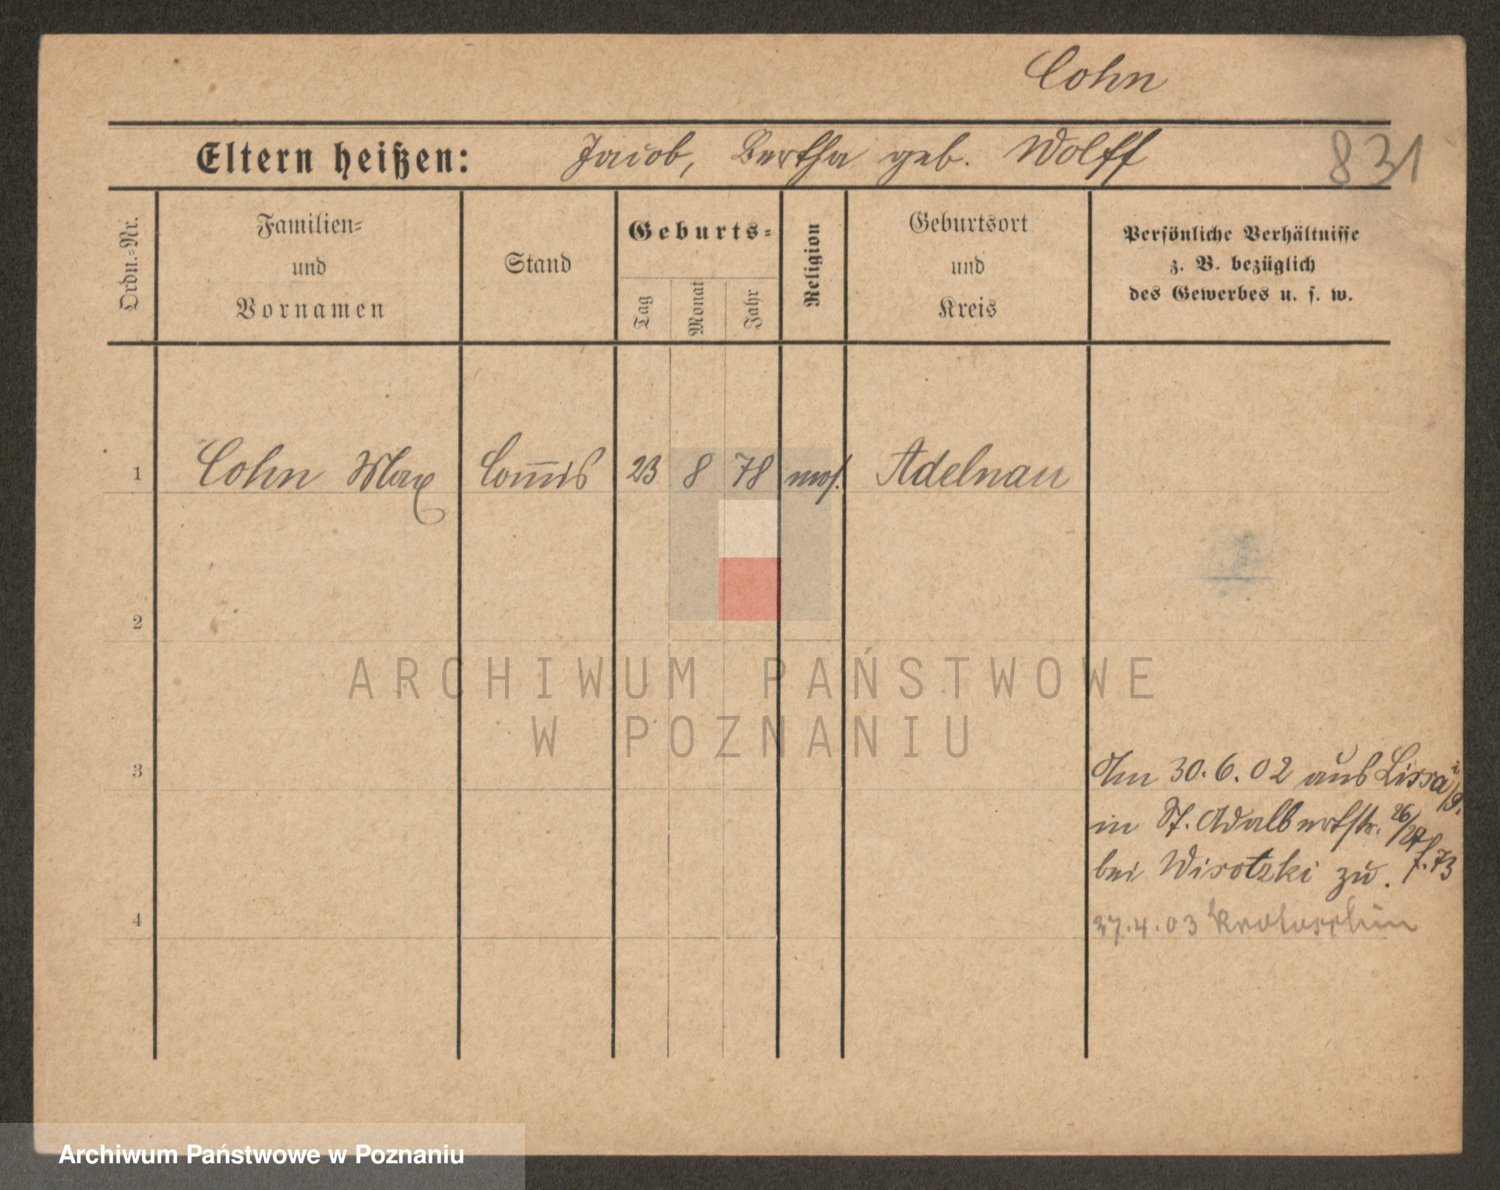 Cohn
Eltern heißen: Jacob, Bertha geb. Wolff
831
Ordn.-Nr.
Familien-
und
Vornamen
Stand
Geburts-
Tag
Monat
Jahr
Religion
Geburtsort
und
Kreis
Persönliche Verhältnisse
z. B. bezüglich
des Gewerbes u. s. w.
1 Cohn Max Com̅is 23 8 78 mos. Adelnau
2
ARCHIWUM PAŃSTWOWE
W POZNANIU
3
Am 30.6.02 aus Lissa
in St. Adalbertstr. 26/27
bei Wisotzki zu. f. 73
4
27.4.03 Krotoschin
Archiwum Państwowe w Poznaniu